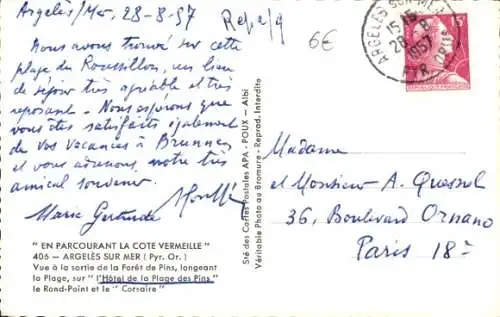 Argelès/Mer, 28-8-57
Nous avons trouvé sur cette
plage du Roussillon, un lieu
de séjour très agréable et très
reposant. Nous espérons que
vous êtes satisfaits également
de vos vacances à Brunnen
et vous adressons, notre très
amical souvenir.
Marie Gertrude
"EN PARCOURANT LA COTE VERMEILLE"
406 — ARGELÈS SUR MER (Pyr. Or.)
Vue à la sortie de la Forêt de Pins, longeant
la Plage, sur "l'Hôtel de la Plage des Pins"
le Rond-Point et le "Corsaire"
6€
Sté des Cartes Postales APA - POUX - Albi
Véritable Photo au Bromure - Reprod. Interdite
ARGELÈS SUR MER
28-8
1957
PYR. ORIles
15F
Madame
et Monsieur A. Quesnel
36, Boulevard Ornano
Paris 18e